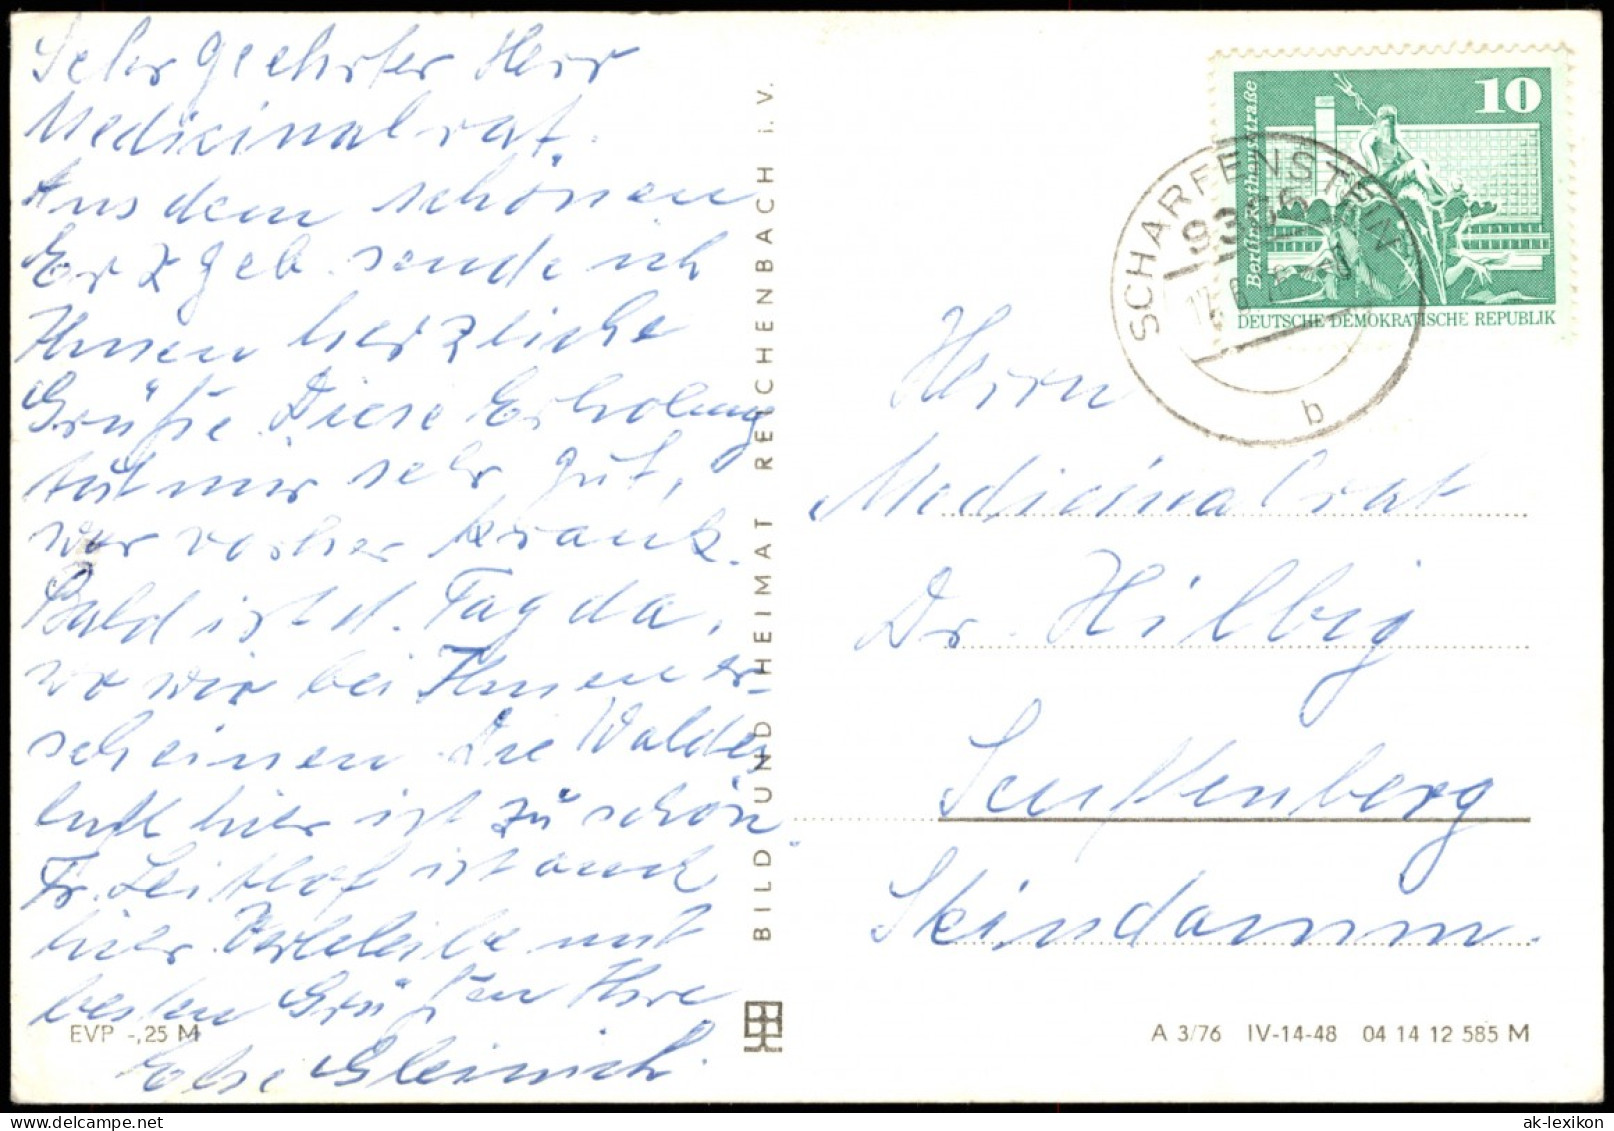 Sehr geehrter Herr
Medicinalrat.
Aus dem schönen
Erzgeb. sende ich
Ihnen herzliche
Grüße. Diese Erholung
tut mir sehr gut,
war vorher krank.
Bald ist d. Tag da,
wo wir bei Ihnen er-
scheinen. Die Waldes
luft hier ist zu schön
Fr. Leithof ist auch
hier. Verbleibe mit
besten Grüßen Ihre
Else
EVP -,25 M
BILD UND HEIMAT REICHENBACH i. V.
10
Berlin-Rathausstraße
DEUTSCHE DEMOKRATISCHE REPUBLIK
SCHARFENSTEIN
b
Herrn
Medicinalrat
Dr. Hilbig
Senftenberg
Steindamm.
A 3/76 IV-14-48 04 14 12 585 M
ak-lexikon